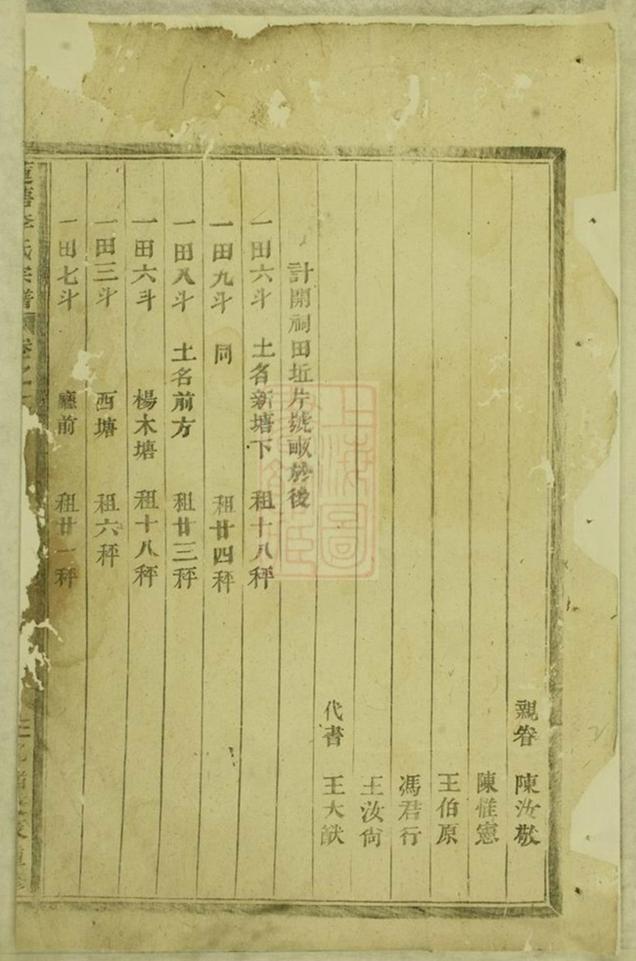 親眷 陳汝敬
陳惟憲
王伯原
馮君行
王汝尙
代書 王大猷
計開祠田坵片號畝於後
一田六斗 土名新塘下 租十八秤
一田九斗 同 租廿四秤
一田八斗 土名前方 租廿三秤
一田六斗 楊木塘 租十八秤
一田三斗 西塘 租六秤
一田七斗 廳前 租廿一秤
李氏宗譜 卷之